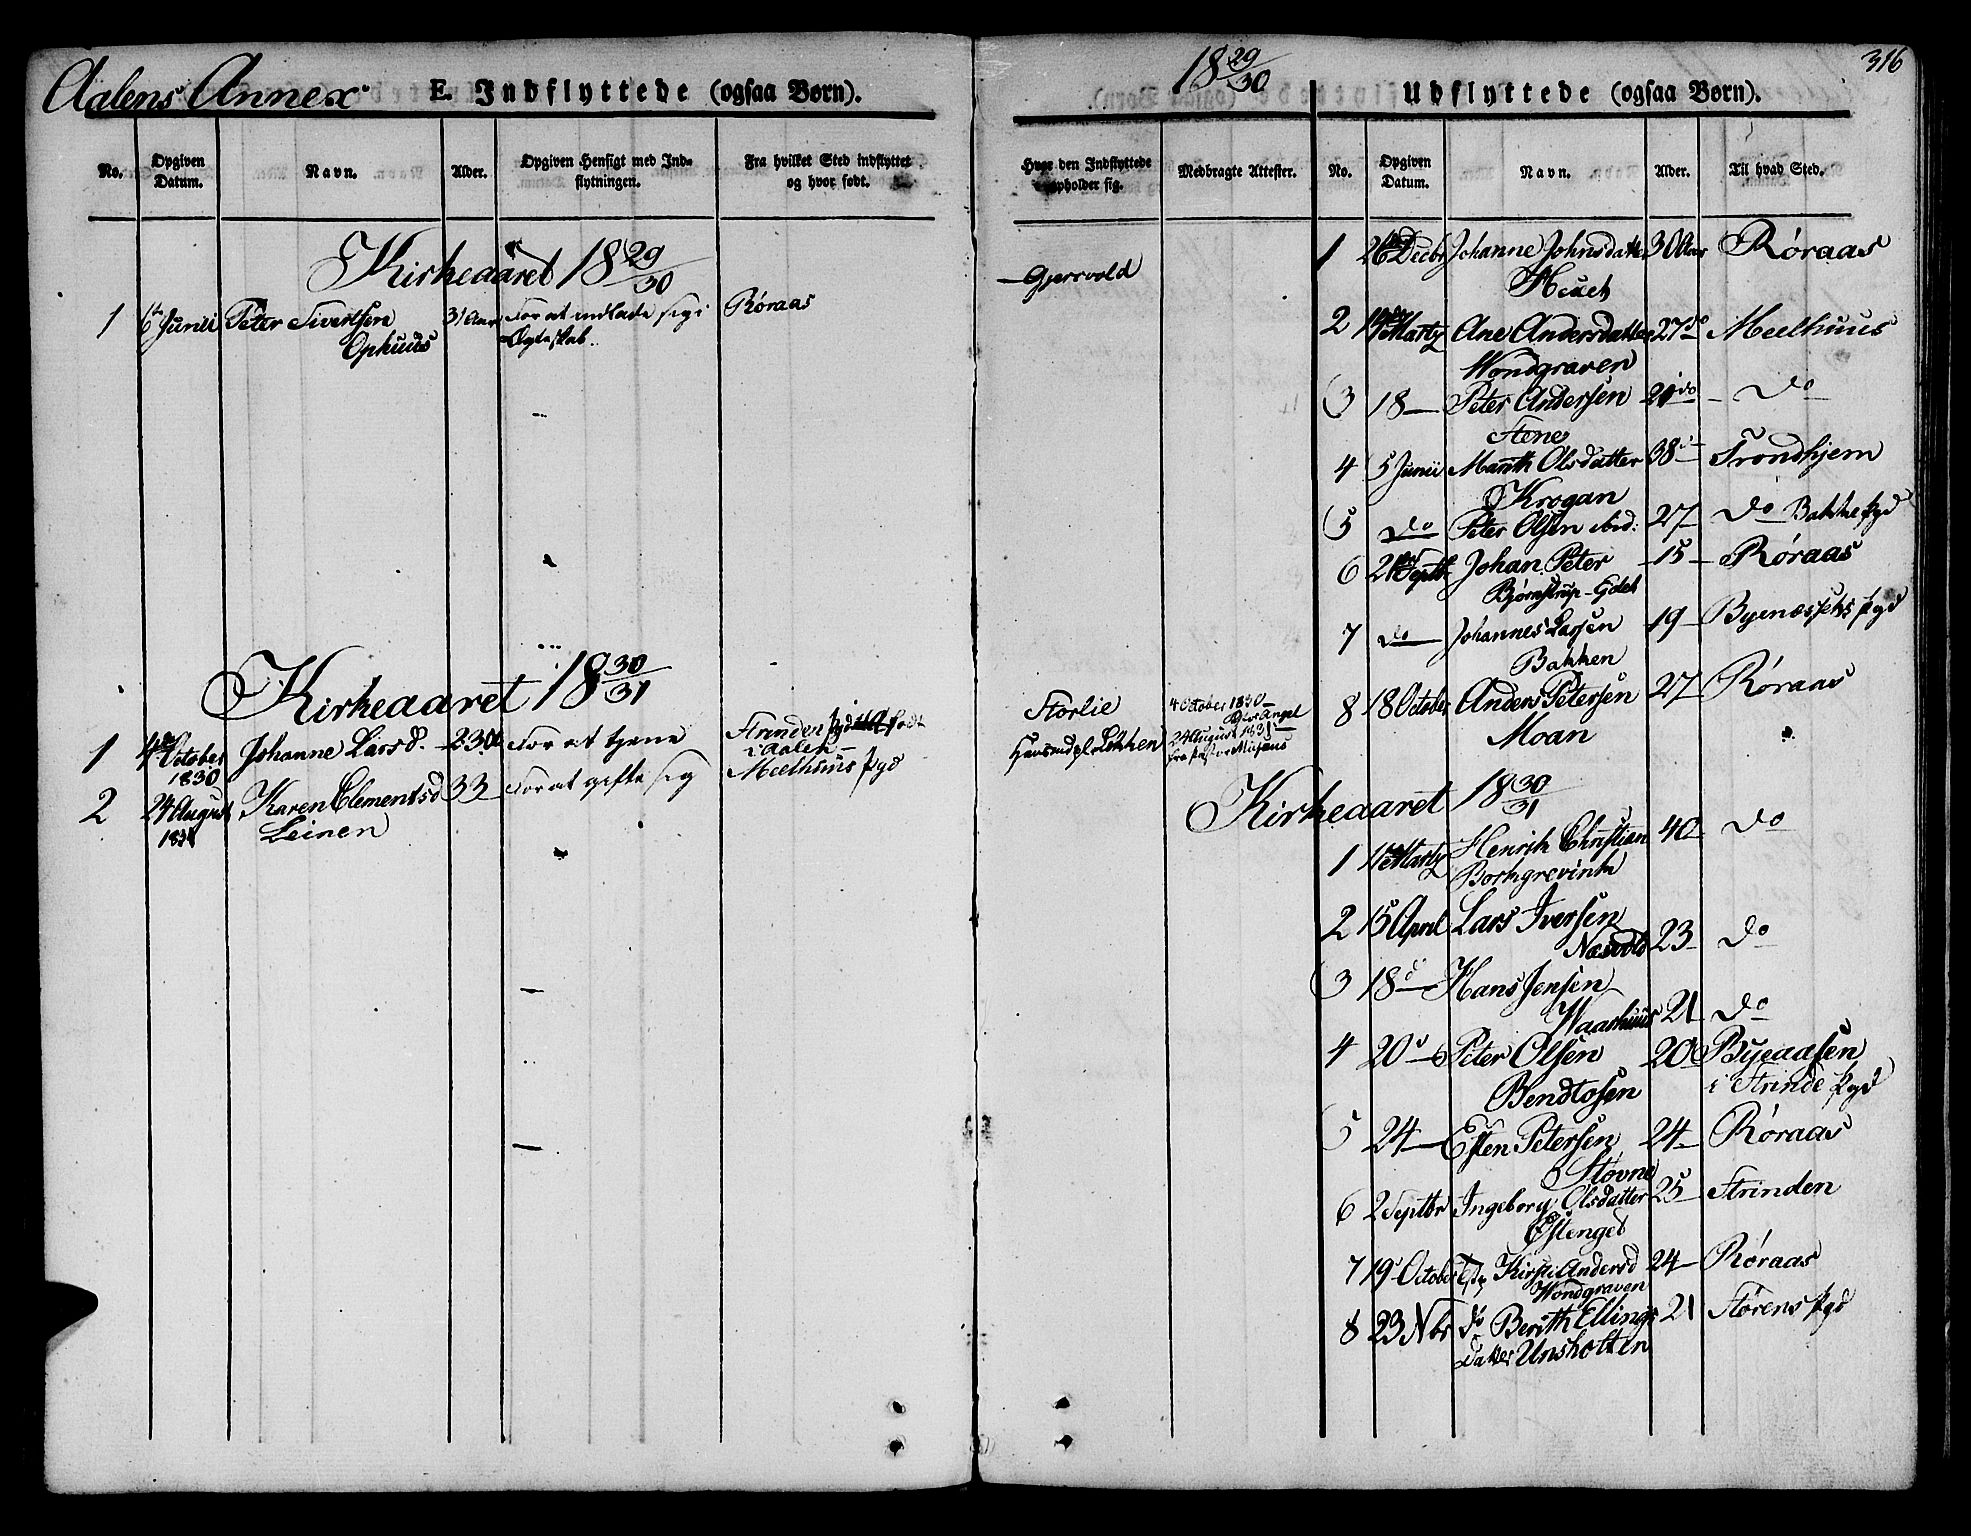 Aalens Annex.
E. Indflyttede (ogsaa Børn).
No.
Opgiven Datum.
Navn.
Alder.
Opgiven Hensigt med Ind-
flytningen.
Fra hvilket Sted indflyttet
og hvor født.
Kirkeaaret 18 29/30
1 6te Junii Peter Sivertsen 31 Aar For at indlade sig i Røraas
Ophuus Ægteskab.
Kirkeaaret 18 30/31
1 4de October Johanne Larsd. 23 For at tjene Strinden født
1830 i Aalen
2 24 August Karen Clementsd 33 For at gifte sig Meelhuus Pgd
1831 Leinen
18 29/30
316
Udflyttede (ogsaa Børn).
Hvor den Indflyttede
opholder sig.
Medbragte Attester.
No.
Opgiven Datum.
Navn.
Alder.
Til hvad Sted.
Gjersvold
Storlie 4 October 1830
24 August 1831
1 26 Decbr Johanne Johnsdatter 30 Aar Røraas
2 Marty Ane Andersdatter 27 do Meelhuus
Vondgraven
3 18 Peter Andersen do do
Stene
4 5 Junii Marith Olsdatter 38 Trondhjem
Krogan
5 do Peter Olsen ibid: 27 do Bakke Pgd
6 Septbr Johan Peter 15 Røraas
Bjørnstrup
7 do Johannes Larsen 19 Byenæssets Pgd
Bakken
8 18 October Anders Petersen 27 Røraas
Moan
Kirkeaaret 18 30/31
1 Marty Henrik Christian 40 do
Borchgrevink
2 15 April Lars Iversen
Næsvold 23 do
3 18 Hans Jensen
Waarhuus 21 do
4 20 Peter Olsen 20 Byeaasen
Bendtosen i Strinde Pgd
5 24 Esten Petersen 24 Røraas
Støvne
6 2 Septbr Ingeborg Olsdatter 25 Strinden
Østenget
7 19 October Kirsti Andersd 24 Røraas
Vondgraven
8 23 Nbr do Berith Ellings 21 Størens Pgd
datter Unsholten